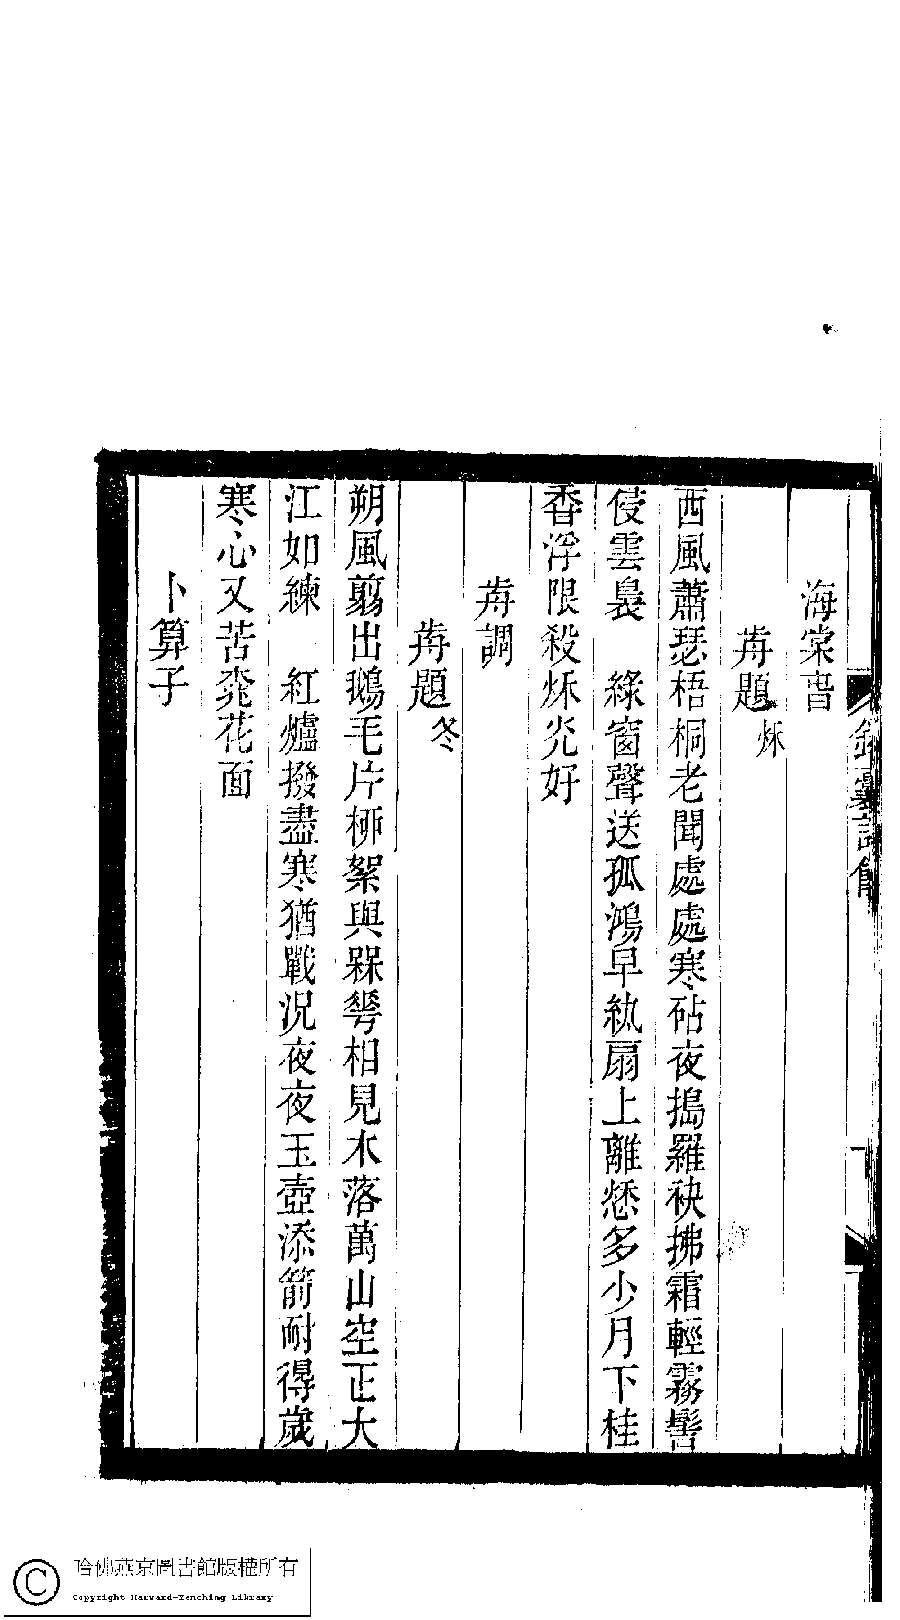 錦囊詩餘
海棠旾
歬題秌
西風蕭瑟梧桐老聞處處寒砧夜搗羅袂拂霜輕霧鬢
侵雲裊　綠窗聲送孤鴻早紈扇上離愁多少月下桂
香浮限殺秌光好
歬調
歬題冬
朔風翦出鵝毛片栁絮與槑荂相見木落萬山空正大
江如練　紅爐撥盡寒猶戰況夜夜玉壺添箭耐得歲
寒心又苦桃花面
卜算子
哈佛燕京圖書館版權所有
Copyright Harvard-Yenching Library